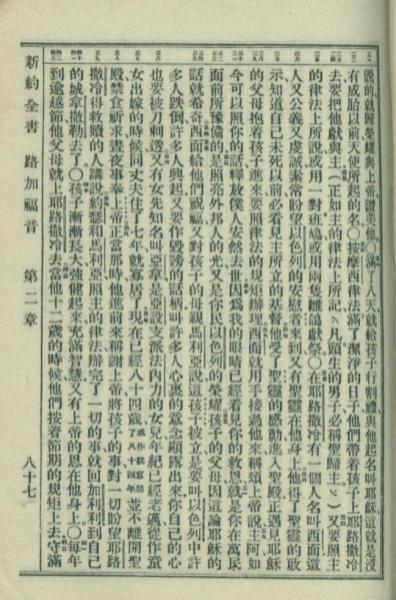 說的就歸榮耀與上帝讚美他○滿了八天就給孩子行割禮與他起名叫耶穌這就是沒
有成胎以前天使所起的名○按摩西律法滿了潔淨的日子他們帶着孩子上耶路撒冷
去要把他獻與主（正如主的律法上所記凡頭生的男子必稱聖歸主）又要照主
的律法上所說或用一對班鳩或用兩隻雛鴿獻祭○在耶路撒冷有一個人名叫西面這
人又公義又虔誠素常盼望以色列的安慰者來到又有聖靈在他身上他得了聖靈的啟
示知道自己未死以前必看見主所立的基督他受了聖靈的感動進入聖殿正遇見耶穌
的父母抱着孩子進來要照律法的規矩辦理西面就用手接過他來稱頌上帝說主阿如
今可以照你的話釋放僕人安然去世因爲我的眼睛已經看見你的救恩就是你在萬民
面前所豫備的是照亮外邦人的光又是你民以色列的榮耀孩子的父母因這論耶穌的
話就希奇西面給他們祝福又對孩子的母親馬利亞說這孩子被立是要叫以色列中許
多人跌倒許多人興起又要作毀謗的話柄叫許多人心裏的意念顯露出來你自己的心
也要被刀刺透又有女先知名叫亞拿是亞設支派法內力的女兒年紀已經老邁從作童
女出嫁的時候同丈夫住了七年就寡居了現在已經八十四歲並不離開聖
殿禁食祈求晝夜事奉上帝正當那時他進前來稱謝上帝將孩子的事對一切盼望耶路
撒冷得救贖的人講說約瑟和馬利亞照主的律法辦完了一切的事就回加利利到自己
的城拿撒勒去了○孩子漸漸長大強健起來充滿智慧又有上帝的恩在他身上○每年
到逾越節他父母就上耶路撒冷去當他十二歲的時候他們按着節期的規矩上去守滿
新約全書 路加福音 第二章 八十七